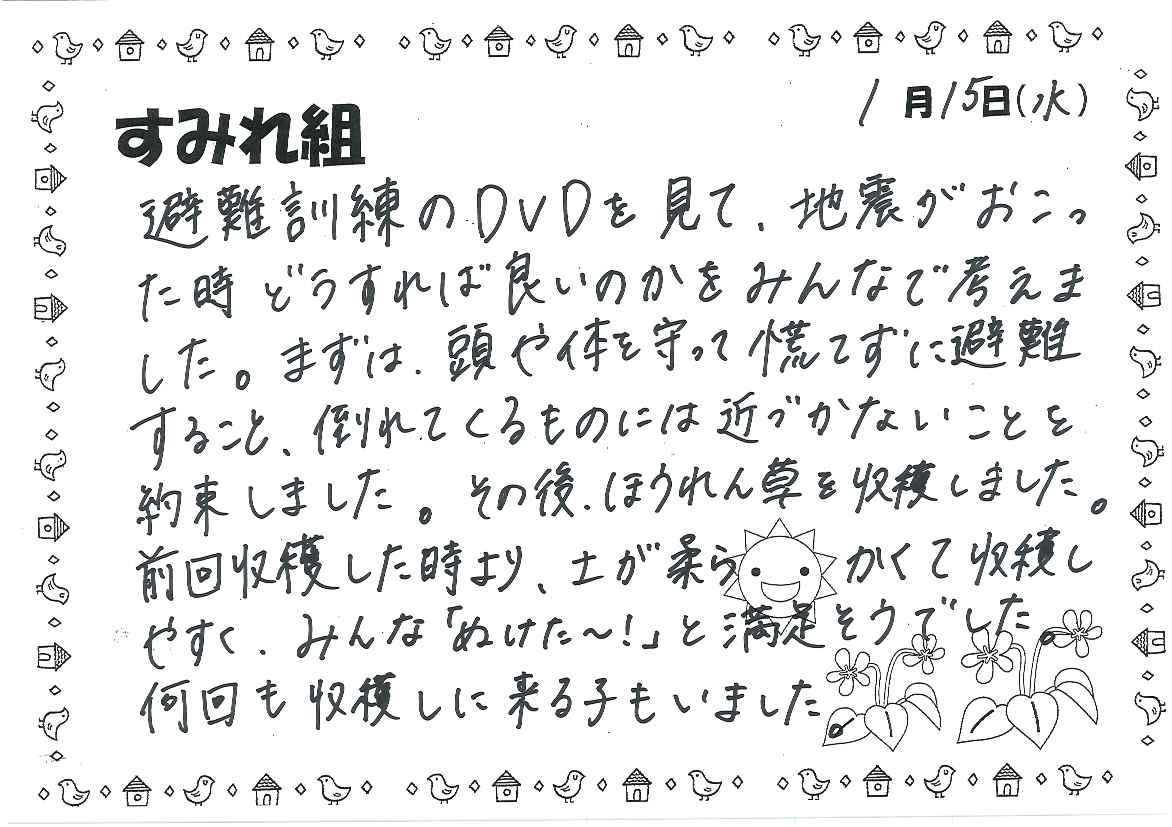 1月15日(水)
すみれ組
避難訓練のDVDを見て、地震がおこっ
た時どうすれば良いのかをみんなで考えま
した。まずは、頭や体を守って慌てずに避難
すること、倒れてくるものには近づかないことを
約束しました。その後、ほうれん草を収穫しました。
前回収穫した時より、土が柔らかくて収穫し
やすく、みんな「ぬけた〜！」と満足そうでした。
何回も収穫しに来る子もいました。